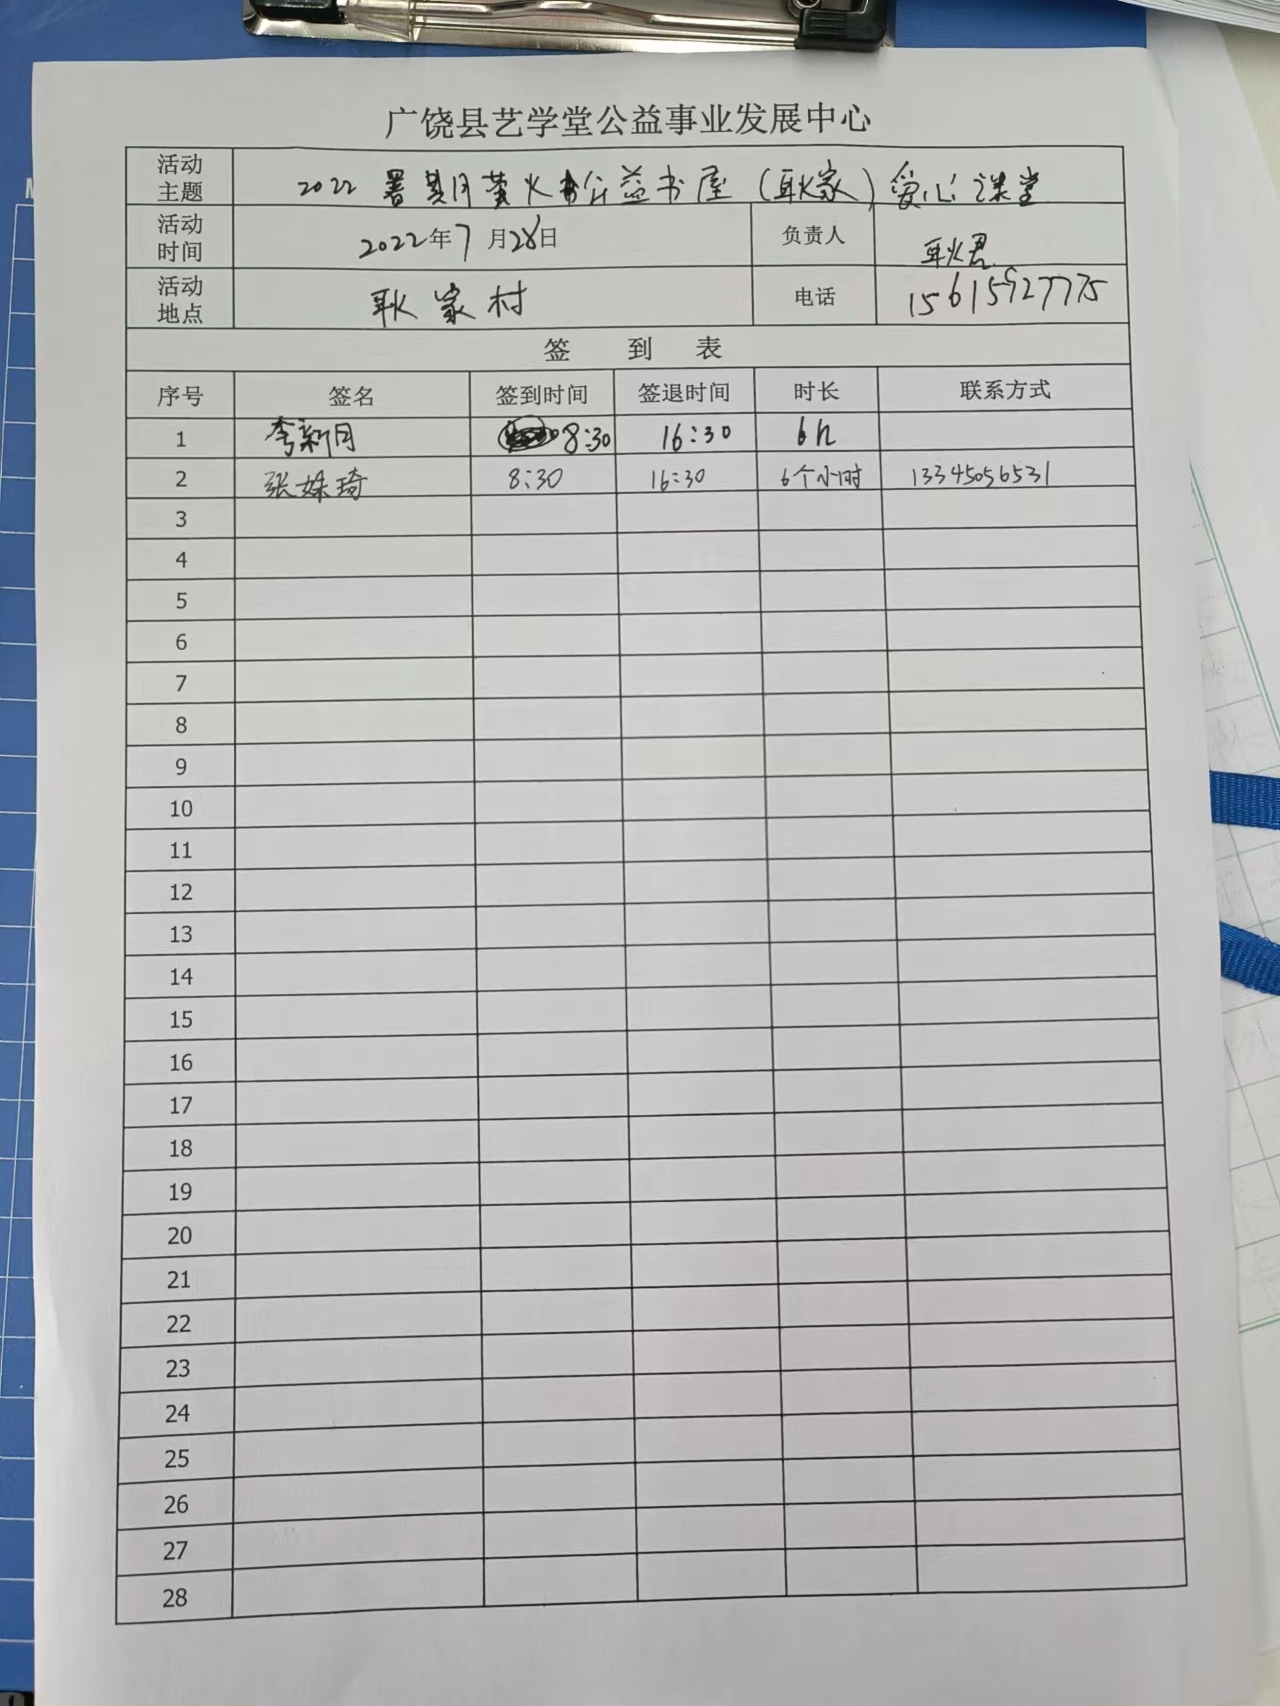 广饶县艺学堂公益事业发展中心
活动主题 2022暑期萤火公益书屋（耿家）爱心课堂
活动时间 2022年7月28日 负责人 耿君
活动地点 耿家村 电话 15615927775
签 到 表
序号 签名 签到时间 签退时间 时长 联系方式
1 李新月 8:30 16:30 6h
2 张姝琦 8:30 16:30 6个小时 13345056531
3
4
5
6
7
8
9
10
11
12
13
14
15
16
17
18
19
20
21
22
23
24
25
26
27
28